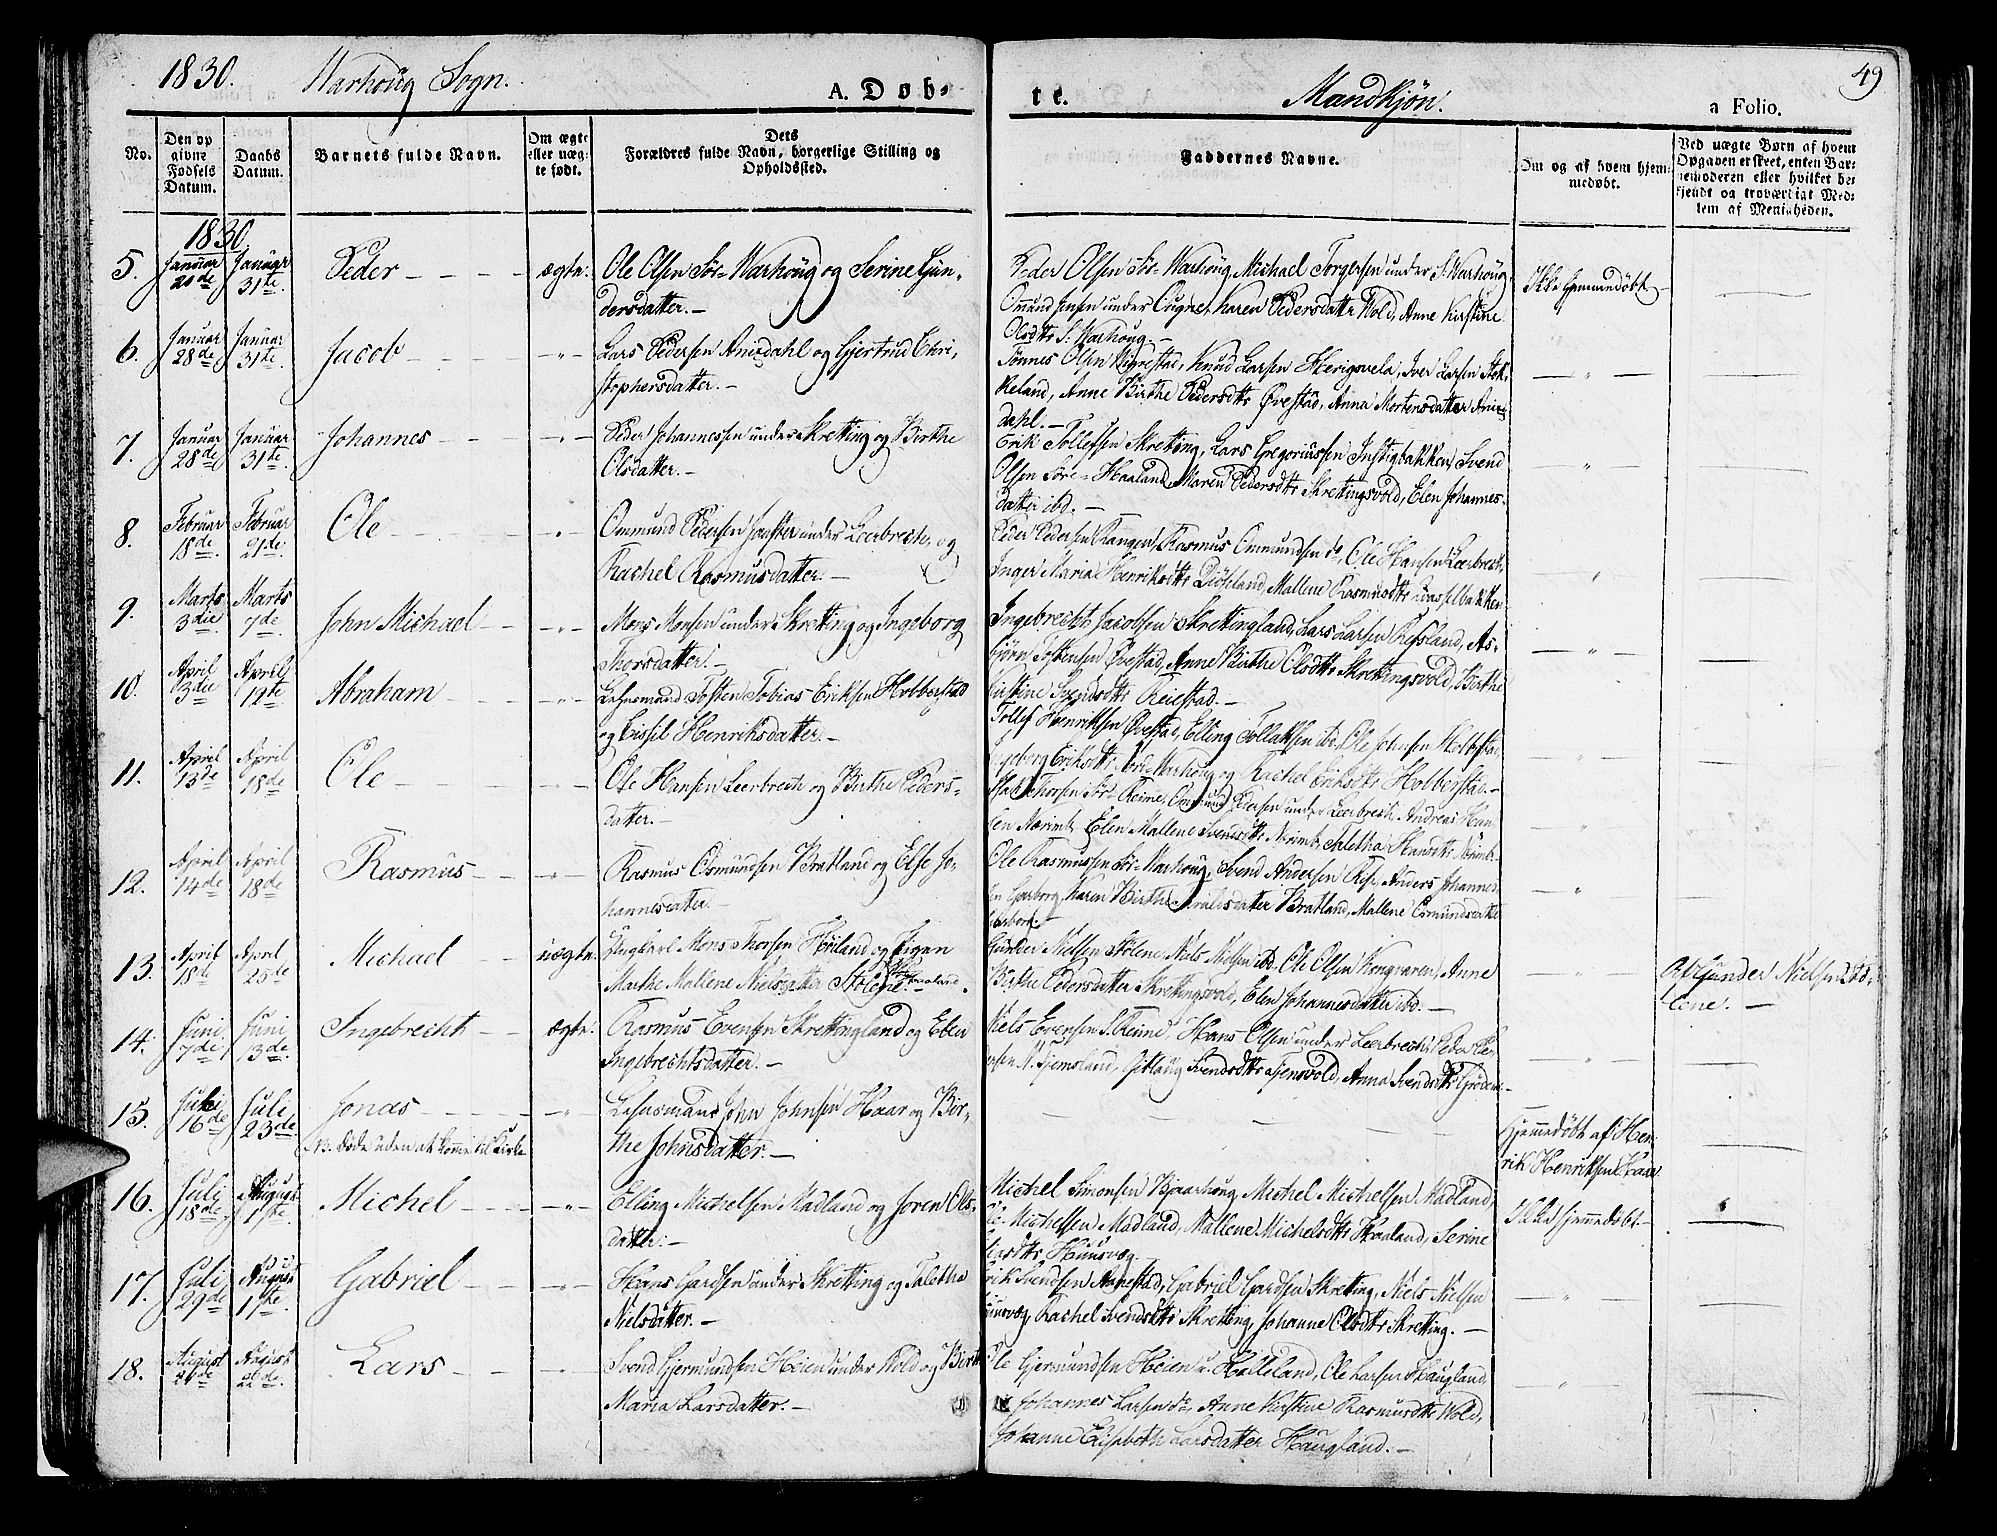 1830. Warhoug Sogn. A. Døb-
te. Mandkjön. a Folio. 49
No. Den opgivne Fødsels Datum. Daabs Datum. Barnets fulde Navn. Om ægte eller uægte født. Dets Forældres fulde Navn, borgerlige Stilling og Opholdssted. Faddernes Navne. Om og af hvem hjemmedøbt. Ved uægte Børn af hvem Opgaven er skeet, enten Barnemoderen eller hvilket bekjendt og troværdigt Medlem af Menigheden.
1830.
5. Januar 20de Januar 31te. Peder ægte. Ole Olsen Sör-Warhoug og Serine Gun-
dersdatter.
Peder Olsen Sör-Warhoug, Michael Torgersen under S. Warhoug,
Omund Jensen under Ougne, Karen Pedersdatter Wold, Anne Kirstine
Olsdtr S. Warhoug.
Ikke hjemmedöbt
6. Januar 28de Januar 31te Jacob Lars Pedersen Anisdahl og Gjertrud Chri-
stophersdatter.
Tönnes Olsen Vigrestad, Knud Larsen Herigsvela, Iver Larsen Stok-
keland, Anne Birthe Pedersdtr Øvestad, Anna Mortensdatter Anis-
dahl.
7. Januar 28de Januar 31te. Johannes Peder Johannessen under Skretting og Birthe
Olsdatter.
Erik Tollefsen Skretting, Lars Gregoriussen Instigbakken, Svend
Olsen Söre-Haaland, Maren Pedersdtr Skrettingsvold, Elen Johannes-
datter ibd.
8. Februar 18de Februar 21de. Ole Ommund Pedersen under Leerbrecht og
Rachel Rasmusdatter.
Peder Pedersen Rangen, Rasmus Ommundsen do, Ole Hansen Leerbrecht,
Inger Maria Henriksdtr Mallene Rasmusdtr
9. Marts 3die Marts 7de. John Michael Mons Monsen under Skretting og Ingeborg
Thorsdatter.
Ingebrecht Jacobsen Skrettingland, Lars Larsen Refsland, As-
björn Tostensen Øvestad, Anne Birthe Olsdtr Skrettingsvold, Birthe
Kirstine Svendsdtr Reiestad.
10. April 3die April 12te. Abraham Lehnsmand Tosten Tobias Eriksen Hobberstad
og Sissil Henriksdatter.
Tollef Henriksen Øvestad, Elling Tollaksen ibd, Ole Johnsen Hobbstad,
Ingeborg Eriksdtr Nöre Warhoug og Rachel Eriksdtr Hobberstad.
11. April 13de April 18de. Ole Ole Hansen Leerbrecht og Birthe Peders-
datter.
Thorsen Sör-Reime, Ommund Pedersen under Leerbrech, Andreas Han-
sen Nærimb, Elen Mallene Svendsdtr Nærimb, Taletha Hansdtr Nærimb.
12. April 14de April 18de. Rasmus Rasmus Osmundsen Bratland og Else Jo-
hannesdatter.
Ole Rasmussen Sör-Warhoug, Svend Andersen Anders Johannes-
sen Garborg, Karen Birthe Haraldsdatter Bratland, Mallene Osmundsdatter
Garborg.
13. April 18de April 25de Michael uægte. Ungkarl Mons Thorsen Höiland og Pigen
Marthe Mallene Nielsdatter Stölene Haaland.
Gunder Nielsen Stölene, Niels Nielsen ibd. Ole Olsen Kongvaren, Anne
Birthe Pedersdatter Skrettingsvold, Elen Johannesdatter ibd.
Af Gunder Nielsen Stö-
lene.
14. Juni 7de Juni 13de. Ingebrecht ægte. Rasmus Evensen Skrettingland og Elen
Ingebrechtsdatter.
Niels Evensen S. Reime, Hans Olsen under Leerbrech, Peder Pe-
dersen N. Hjemsland, Gitlaug Svendsdtr Anna Svendsdtr
15. Juli 16de Juli 23de. Jonas
NB. döde uden at komme til Kirke
Lehnsmand John Johnsen Haar og Bir-
the Johnsdatter.
Hjemmedöbt af Hen-
rik Henriksen Haar
16. Juli 18de August 1ste. Michel Elling Michelsen Madland og Joren Ols-
datter.
Michel Simonsen Bjaarhoug, Michel Michelsen Madland,
Ole Michelsen Madland, Mallene Michelsdtr Haaland, Serine
Huusvæg.
Ikke hjemmedöbt.
17. Juli 29de August 1ste. Gabriel Hans Gardsen under Skretting og Taletha
Nielsdatter.
Erik Svendsen Aanestad, Gabriel Gardsen Skretting, Niels Nielsen
Huusvæg, Rachel Svendsdtr Skretting, Johanne Olsdtr Skretting.
18. August August 22de. Lars Svend Gjermundsen Heien under Wold og Birthe
Maria Larsdatter.
Ole Gjermundsen Heien u. Hölleland, Ole Larsen Haugland
Johannes Larsen do, Anne Kirstine Rasmusdtr Wold,
Johanne Elisabeth Larsdatter Haugland.